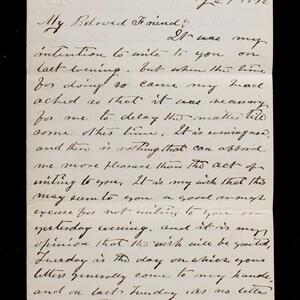 My Beloved Friend:
It was my
intention to write to you on
last evening, but when the time
for doing so came my head
ached so that it was necessary
for me to delay the matter till
some other time. It is evening now,
and there is nothing that can afford
me more pleasure than the act of
writing to you. It is my wish that this
may seem to you a good enough
excuse for not writing to you on
yesterday evening, and it is my
opinion that the wish will be granted.
Tuesday is the day on which your
letters generally come to my hands
and on last Tuesday as no letter